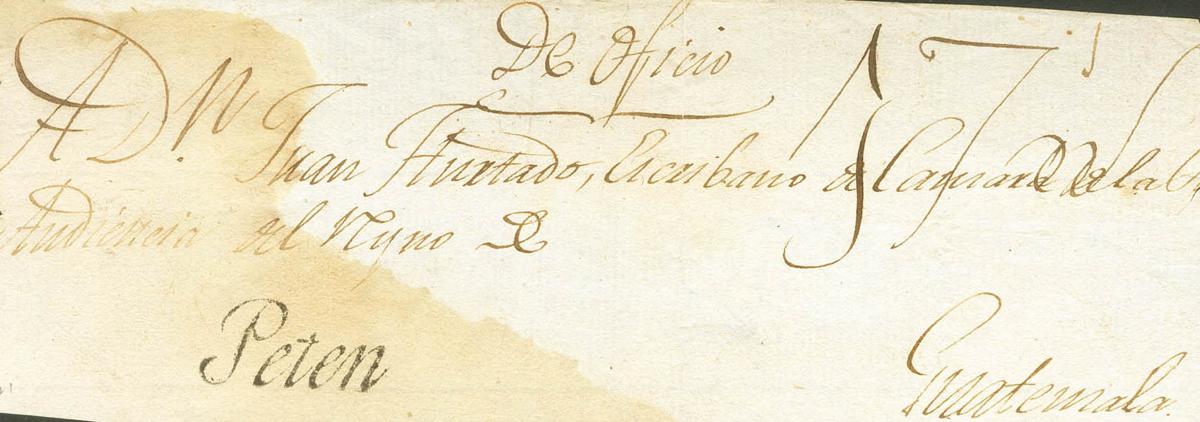 De Oficio
A Dn. Juan Hurtado, Escribano de Camara de la
Audiencia del Ryno de
Peten
Guatemala.